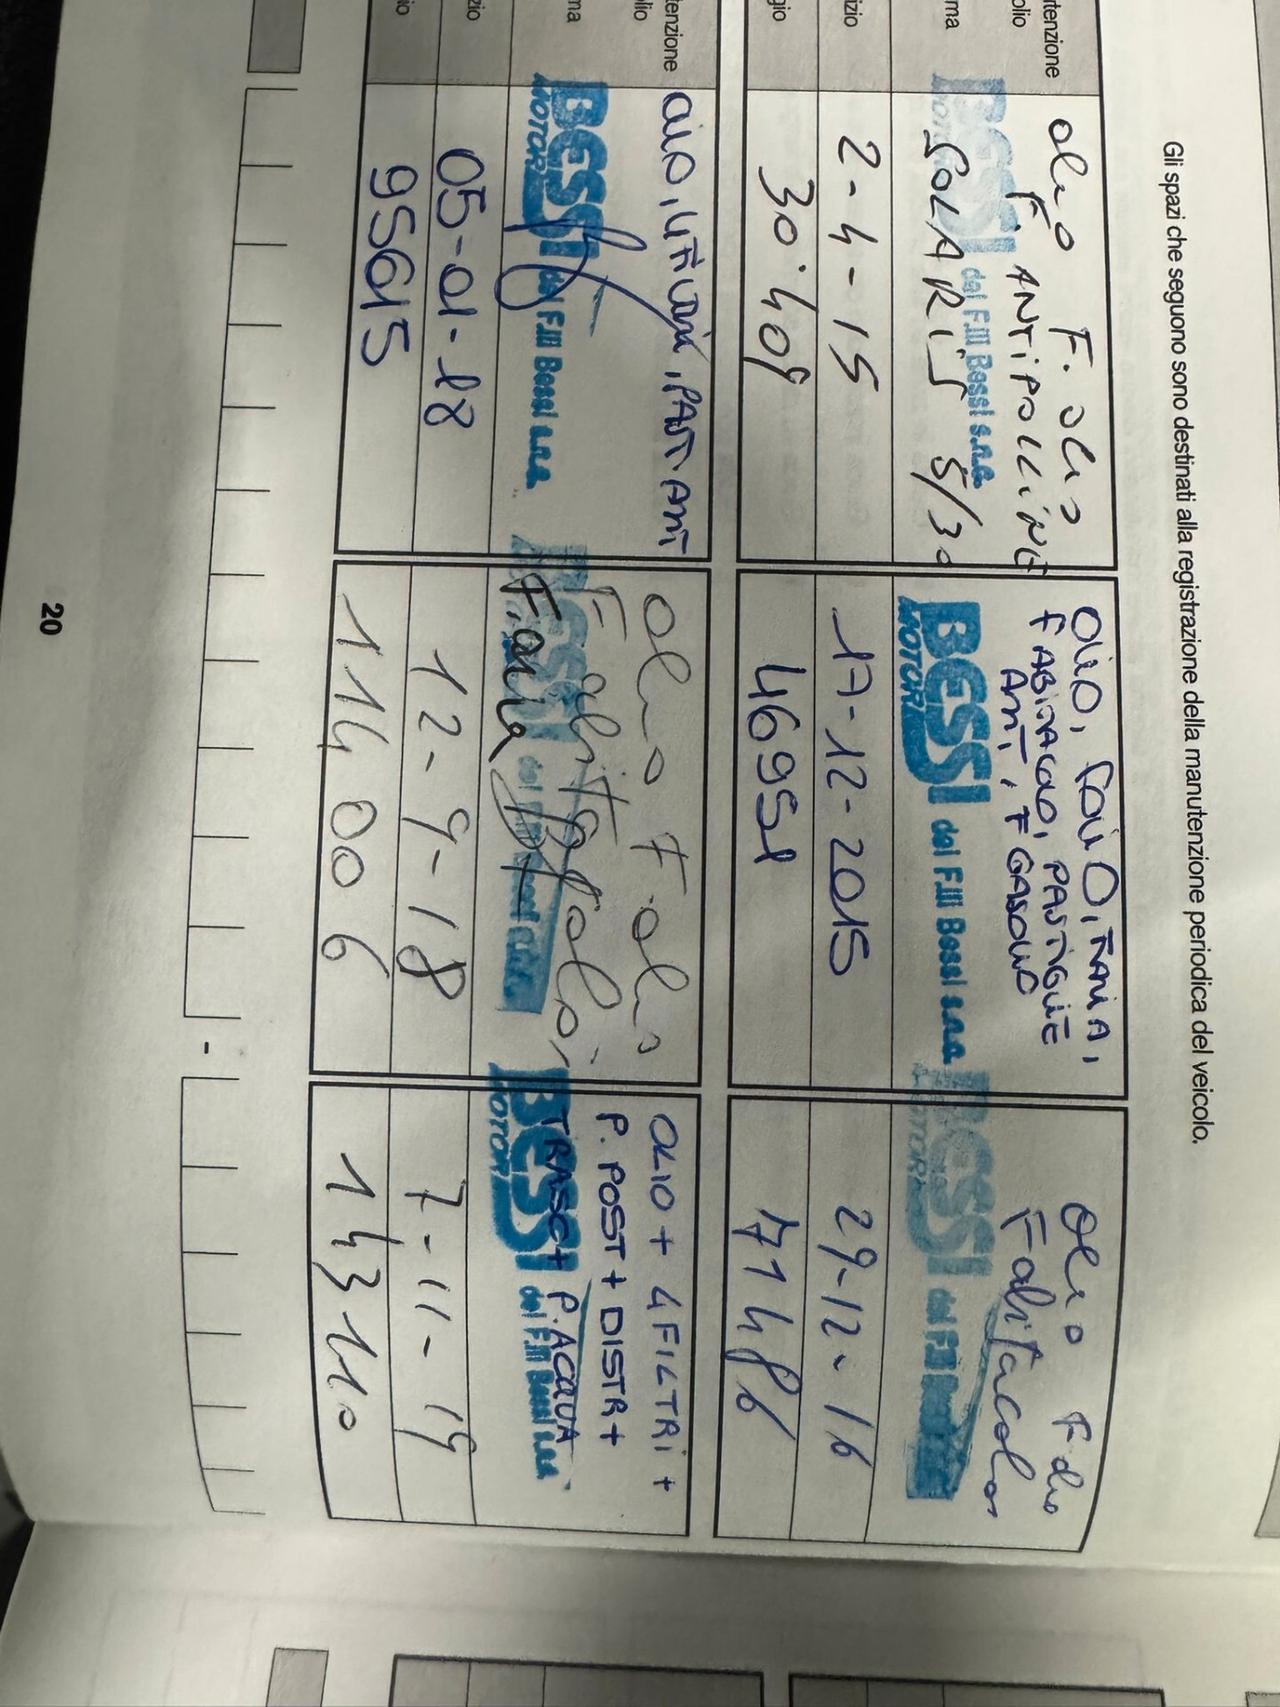 Gli spazi che seguono sono destinati alla registrazione della manutenzione periodica del veicolo.
tenzione
olio
ma
izio
gio
olio F. olio
F. ANTIPOLLINE
BESSI dei F.lli Bessi s.n.c.
MOTORI
SOLARIS 5/30
2-4-15
30.409
OLIO, F. OLIO, F. ARIA,
F ABITACOLO, PASTIGLIE
ANT, F GASOLIO
BESSI dei F.lli Bessi s.n.c.
MOTORI
17-12-2015
46951
Olio F olio
F abitacolo
BESSI dei F.lli
MOTORI
29-12-16
71486
tenzione
olio
ma
zio
io
OLIO, 4 FILTRI, PAST. ANT
BESSI dei F.lli Bessi s.n.c.
MOTORI
05-01-18
95615
Olio F olio
F abitacolo
F. aria
BESSI dei
12-9-18
114006
OLIO + 4 FILTRI +
P. POST + DISTR +
TRASC + P. ACQUA
BESSI dei F.lli Bessi s.n.c.
MOTORI
7-11-19
143110
-
20